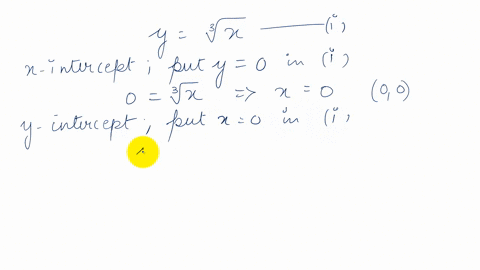 y = ∛x —— (i)
x-intercept ; put y = 0 in (i)
0 = ∛x => x = 0 (0,0)
y-intercept ; put x = 0 in (i)